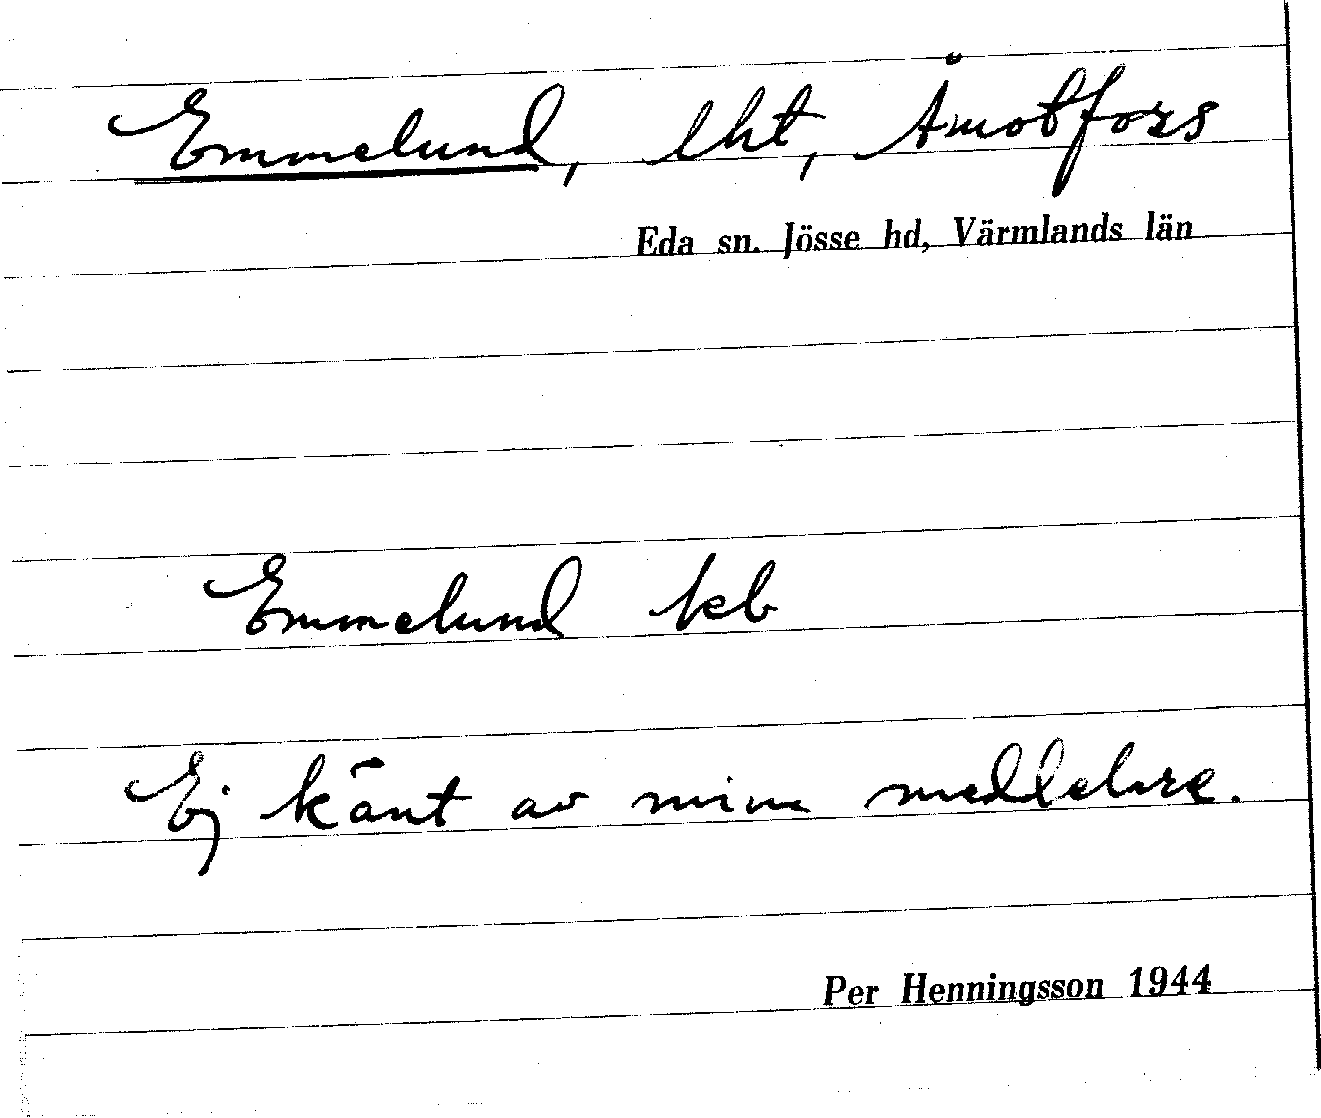 Emmelund, lht, Åmotfors
Eda sn. Jösse hd, Värmlands län
Emmelund keb
Ej känt av mina meddelare.
Per Henningsson 1944